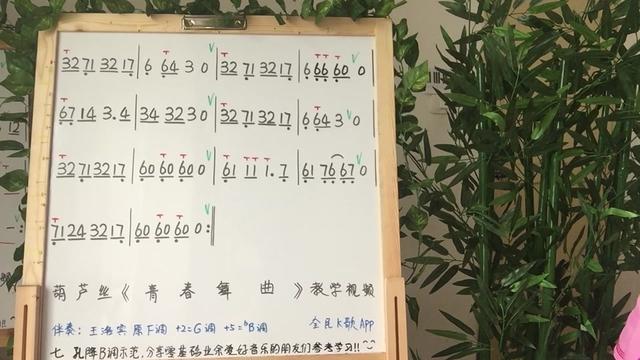 3271 3217 | 6 64 3 0 | 3271 3217 | 6 66 60 0 |
67 14 3.4 | 34 32 3 0 | 3271 3217 | 6 64 3 0 |
3271 3217 | 60 60 60 0 | 61 11 1.7 | 61 76 67 0 |
7124 3217 | 60 60 60 0 :||
葫芦丝《青春舞曲》教学视频
伴奏：王洛宾 原F调 +2=G调 +5=ᵇB调 全民K歌APP
七孔降B调示范，分享零基础业余爱好音乐的朋友们参考学习!!